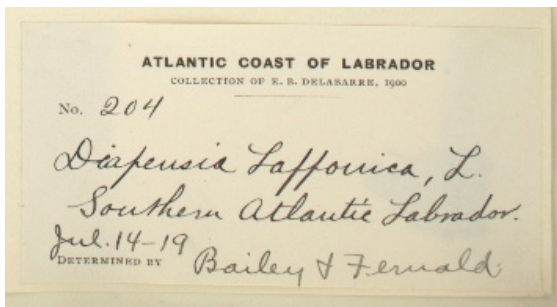 ATLANTIC COAST OF LABRADOR
COLLECTION OF E. B. DELABARRE, 1900
No. 204
Diapensia Lapponica, L.
Southern Atlantic Labrador.
Jul. 14-19
DETERMINED BY Bailey & Fernald